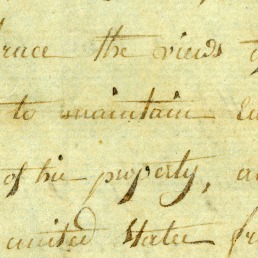 the views
to maintain
of his property,
united States